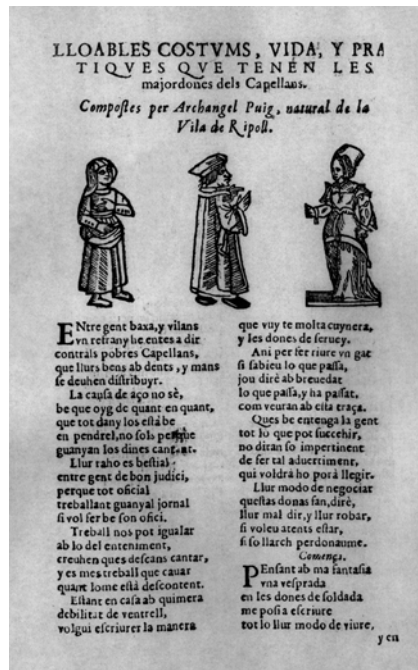 LLOABLES COSTVMS, VIDA, Y PRA
TIQVES QVE TENEN LES
majordones dels Capellans.
Compostes per Archangel Puig, natural de la
Vila de Ripoll.
ENtre gent baxa, y vilans
vn refrany he entes a dir
contrals pobres Capellans,
que llurs bens ab dents, y mans
se deuhen distribuyr.
La causa de aço no sè,
be que oyg de quant en quant,
que tot dany los està be
en pendrel, no sols perque
guanyan los dines cantant.
Llur raho es bestial
entre gent de bon judici,
perque tot oficial
treballant guanyal jornal
si vol fer be son ofici.
Treball nos pot igualar
ab lo del enteniment,
creuhen ques descans cantar,
y es mes treball que cauar
quant lome està descontent.
Estant en casa ab quimera
debilitat de ventrell,
volgui escriurer la manera
que vuy te molta cuynera,
y les dones de seruey.
Ani per fer riure vn gat
si sabieu lo que passa,
jou dirè ab breuedat
lo que passa, y ha passat,
com veuran ab esta traça.
Ques be entenga la gent
tot lo que pot succehir,
no diran so impertinent
de fer tal aduertiment,
qui voldrà ho porà llegir.
Llur modo de negociar
questas donas fan, dirè,
llur mal dir, y llur robar,
si voleu atents estar,
si so llarch perdonaume.
Comença.
PEnsant ab ma fantasia
vna vesprada
en les dones de soldada
me posi a escriure
tot lo llur modo de viure,
y en